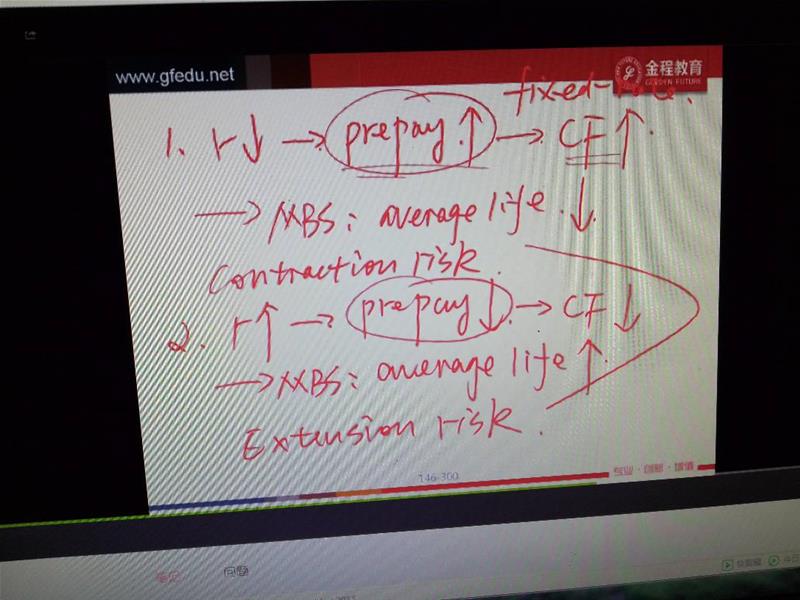 www.gfedu.net
金程教育
GOLDEN FUTURE
fixed-
1. r↓ → prepay ↑ → CF ↑.
→ MBS: average life ↓.
Contraction risk.
2. r↑ → prepay ↓ → CF ↓
→ MBS: average life ↑
Extension risk.
146-300
专业·创新·增值
笔记 问题